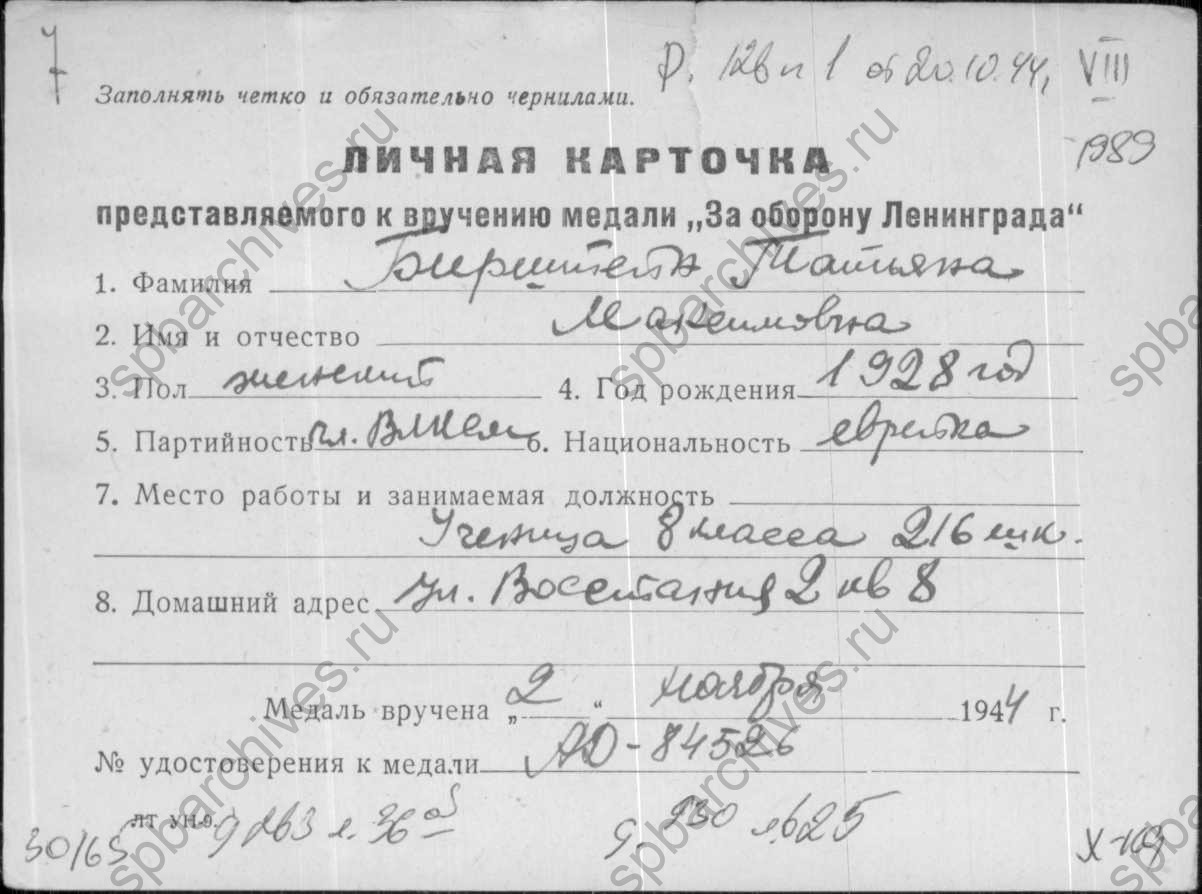 7
р. 126 п 1 от 20.10.44, VIII
Заполнять четко и обязательно чернилами.
1989
ЛИЧНАЯ КАРТОЧКА
представляемого к вручению медали „За оборону Ленинграда“
1. Фамилия Бирштейн Татьяна
2. Имя и отчество Максимовна
3. Пол женский 4. Год рождения 1928 год
5. Партийность чл. ВЛКСМ 6. Национальность еврейка
7. Место работы и занимаемая должность
Ученица 8 класса 216 шк.
8. Домашний адрес ул. Восстания 2 кв 8
Медаль вручена „2“ ноября 1944 г.
№ удостоверения к медали АО-84526
30/65
spbarchives.ru